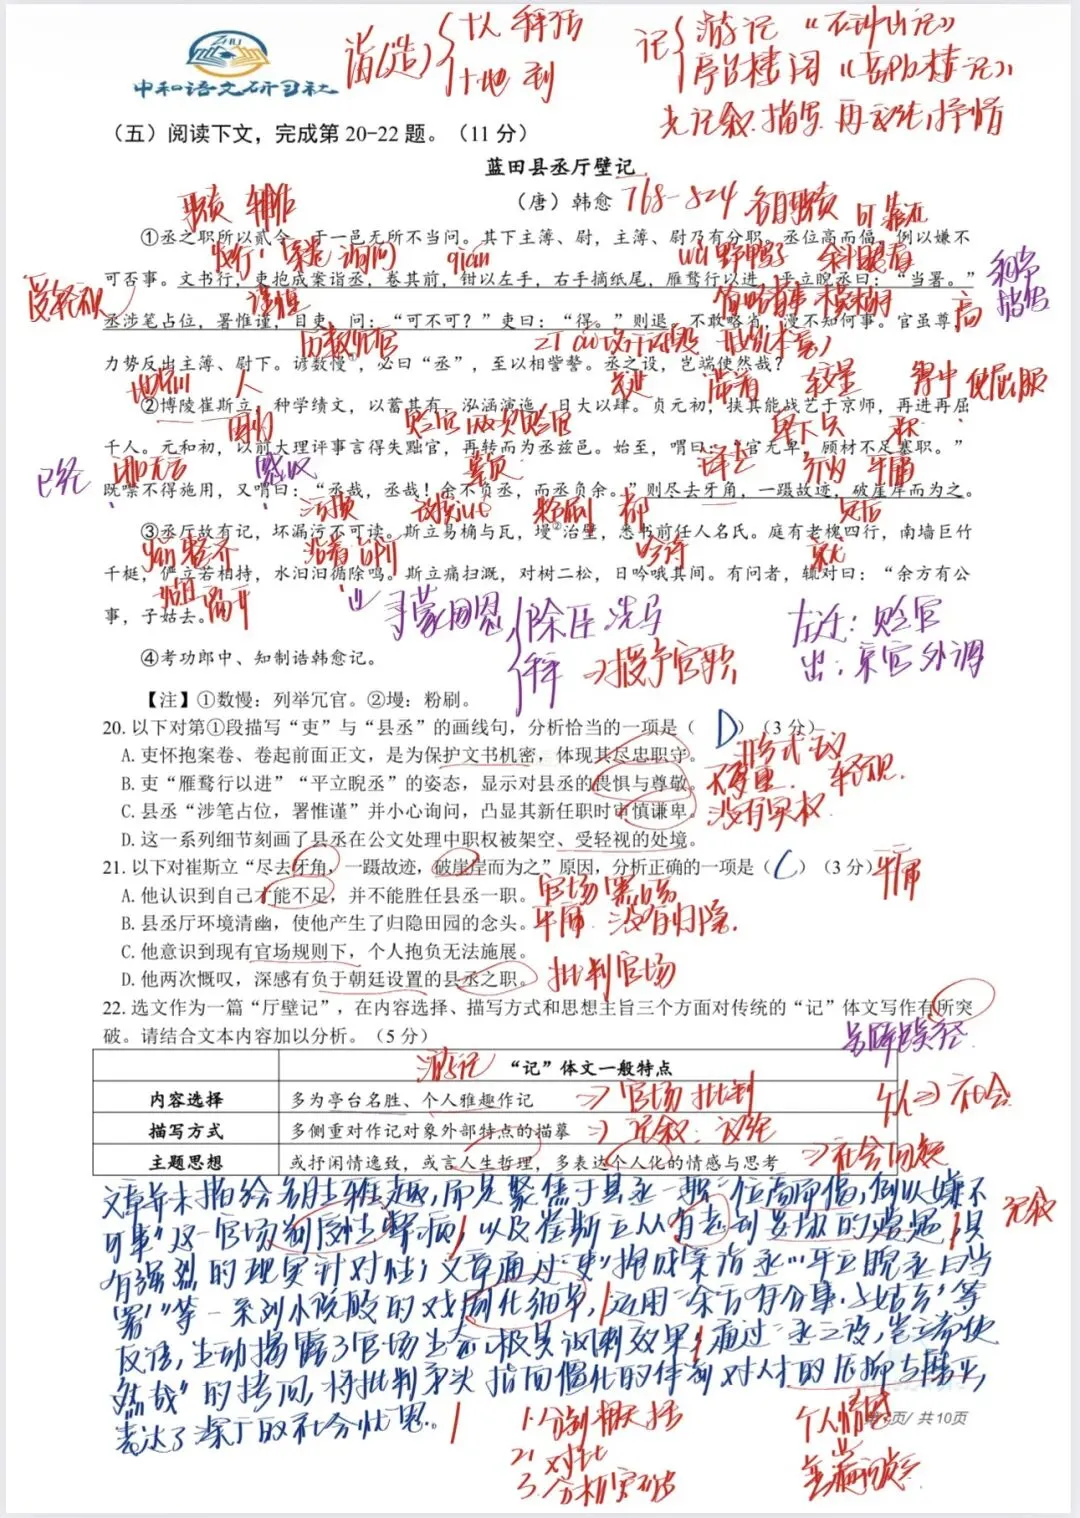 中和语文研习社
诣(造)
记
游记
亭台楼阁
（五）阅读下文，完成第 20-22 题。（11 分）
先记叙.描写.再议论,抒情
蓝田县丞厅壁记
（唐）韩愈
768-824
①丞之职所以贰令，于一邑无所不当问。其下主簿、尉，主簿、尉乃有分职。丞位高而偪，例以嫌不
可否事。文书行，吏抱成案诣丞，卷其前，钳以左手，右手摘纸尾，雁鹜行以进，平立睨丞曰：“当署。”
丞涉笔占位，署惟谨，目吏，问：“可不可？”吏曰：“得。”则退。不敢略省，漫不知何事。官虽尊，
力势反出主簿、尉下。谚数慢①，必曰“丞”，至以相訾謷。丞之设，岂端使然哉？
②博陵崔斯立，种学绩文，以蓄其有，泓涵演迤，日大以肆。贞元初，挟其能战艺于京师，再进再屈
千人。元和初，以前大理评事言得失黜官，再转而为丞兹邑。始至，喟曰：“官无卑，顾材不足塞职。”
既噤不得施用，又喟曰：“丞哉，丞哉！余不负丞，而丞负余。”则尽去牙角，一蹑故迹，破崖岸而为之。
③丞厅故有记，坏漏污不可读。斯立易桷与瓦，墁②治壁，悉书前任人名氏。庭有老槐四行，南墙巨竹
千梃，俨立若相持，水㶁㶁循除鸣。斯立痛扫溉，对树二松，日吟哦其间。有问者，辄对曰：“余方有公
事，子姑去。”
寻蒙国恩,除臣洗马
拜⇒授予官职
左迁：贬官
出：京官外调
④考功郎中、知制诰韩愈记。
【注】①数慢：列举冗官。②墁：粉刷。
20. 以下对第①段描写“吏”与“县丞”的画线句，分析恰当的一项是（ D ）（3 分）
A. 吏怀抱案卷、卷起前面正文，是为保护文书机密，体现其尽忠职守。
B. 吏“雁鹜行以进”“平立睨丞”的姿态，显示对县丞的畏惧与尊敬。
不尊重 轻视.
C. 县丞“涉笔占位，署惟谨”并小心询问，凸显其新任职时审慎谦卑。
没有实权
D. 这一系列细节刻画了县丞在公文处理中职权被架空、受轻视的处境。
21. 以下对崔斯立“尽去牙角，一蹑故迹，破崖岸而为之”原因，分析正确的一项是（ C ）（3 分）
平庸
A. 他认识到自己才能不足，并不能胜任县丞一职。
官场黑暗
B. 县丞厅环境清幽，使他产生了归隐田园的念头。
平庸 没有归隐.
C. 他意识到现有官场规则下，个人抱负无法施展。
D. 他两次慨叹，深感有负于朝廷设置的县丞之职。
批判官场
22. 选文作为一篇“厅壁记”，在内容选择、描写方式和思想主旨三个方面对传统的“记”体文写作有所突
破。请结合文本内容加以分析。（5 分）
游记 “记”体文一般特点
内容选择 多为亭台名胜、个人雅趣作记 ⇒官场批判 个人⇒社会
描写方式 多侧重对作记对象外部特点的描摹 ⇒记叙.议论
主题思想 或抒闲情逸致，或言人生哲理，多表达个人化的情感与思考 ⇒社会问题
文章并未描绘名胜雅趣,而是聚焦于县丞一职“位高而偪,例以嫌不
可否事”这一官场制度性弊病,以及崔斯立从有志到无奈的遭遇,具
有强烈的现实针对性;文章通过“吏”抱成案诣丞…平立睨丞曰当
署”等一系列小说般的戏剧化细节,运用“余方有公事,子姑去”等
反语,生动揭露了官场生态,极具讽刺效果;通过“丞之设,岂端使
然哉”的拷问,将批判矛头指向僵化的体制对人才的压抑与磨灭,
表达了深广的社会忧思。
页/ 共10页
2. 对比